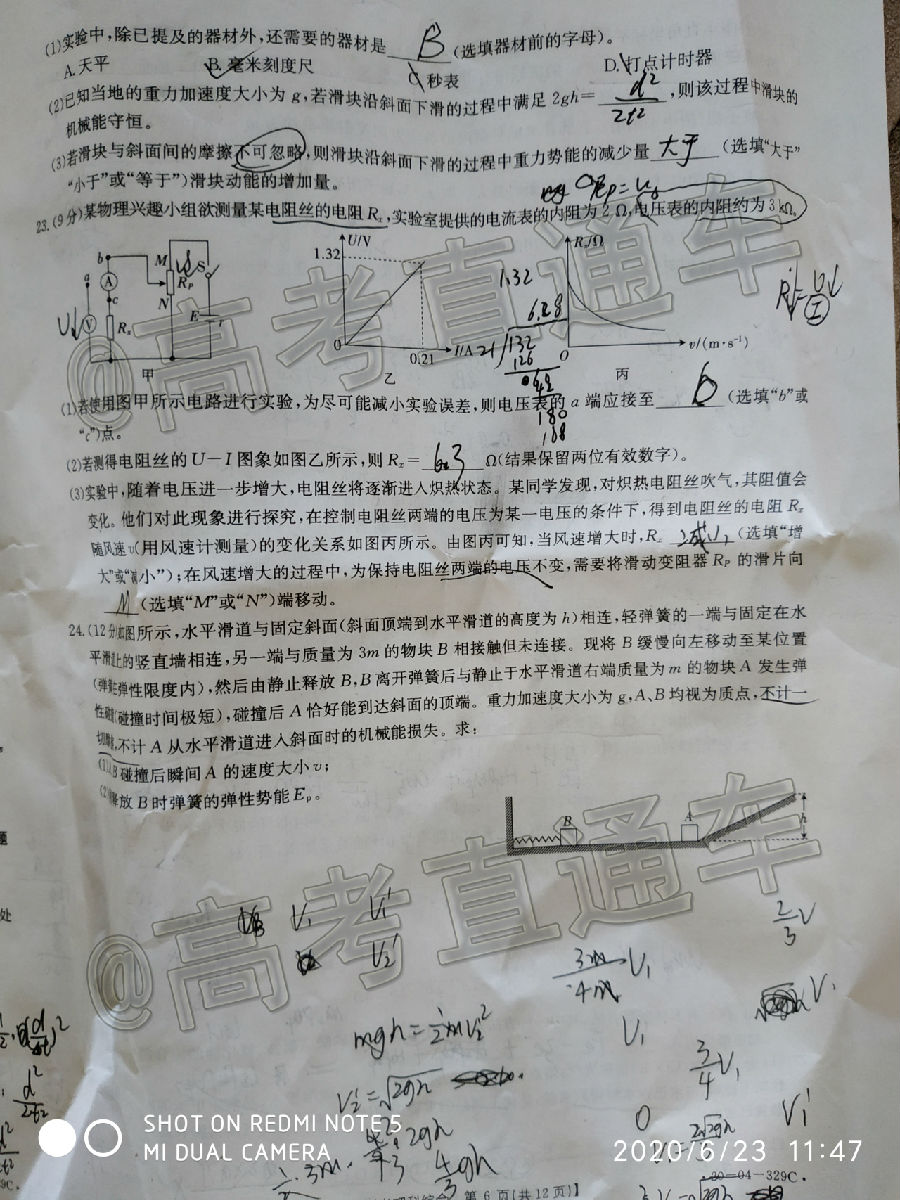 (1)实验中,除已提及的器材外,还需要的器材是 B (选填器材前的字母)。
A.天平 B.毫米刻度尺 C.秒表 D.打点计时器
(2)已知当地的重力加速度大小为g,若滑块沿斜面下滑的过程中满足2gh= d²/2t² ,则该过程中滑块的
机械能守恒。
(3)若滑块与斜面间的摩擦不可忽略,则滑块沿斜面下滑的过程中重力势能的减少量 大于 (选填“大于”
“小于”或“等于”)滑块动能的增加量。
23.(9分)某物理兴趣小组欲测量某电阻丝的电阻Rx,实验室提供的电流表的内阻为2Ω,电压表的内阻约为3kΩ。
b M S
a A Rp
c N
U V Rx E r
甲
U/V
1.32
0 0.21 I/A
乙
Rx/Ω
0 v/(m·s⁻¹)
丙
1.32
6.28
21 132
126
R=U/I
(1)若使用图甲所示电路进行实验,为尽可能减小实验误差,则电压表的a端应接至 b (选填“b”或
“c”)点。
(2)若测得电阻丝的U-I图象如图乙所示,则Rx= 6.3 Ω(结果保留两位有效数字)。
(3)实验中,随着电压进一步增大,电阻丝将逐渐进入炽热状态。某同学发现,对炽热电阻丝吹气,其阻值会
变化。他们对此现象进行探究,在控制电阻丝两端的电压为某一电压的条件下,得到电阻丝的电阻Rx
随风速v(用风速计测量)的变化关系如图丙所示。由图丙可知,当风速增大时,Rx 减小 (选填“增
大”或“减小”);在风速增大的过程中,为保持电阻丝两端的电压不变,需要将滑动变阻器Rp的滑片向
M (选填“M”或“N”)端移动。
24.(12分)如图所示,水平滑道与固定斜面(斜面顶端到水平滑道的高度为h)相连,轻弹簧的一端与固定在水
平滑道上的竖直墙相连,另一端与质量为3m的物块B相接触但未连接。现将B缓慢向左移动至某位置
(弹簧在弹性限度内),然后由静止释放B,B离开弹簧后与静止于水平滑道右端质量为m的物块A发生弹
性碰撞(碰撞时间极短),碰撞后A恰好能到达斜面的顶端。重力加速度大小为g,A、B均视为质点,不计一
切摩擦,不计A从水平滑道进入斜面时的机械能损失。求:
B碰撞后瞬间A的速度大小v;
(2)释放B时弹簧的弹性势能Ep。
B A h
V₁ V₁′
V₂′
3m/4m V₁
2/3 V
mgh=½mV₂²
V₁
3/4 V₁
V₂′=√2gh
0
V₁′
4/3 gh
@高考直通车
@高考直通车
SHOT ON REDMI NOTE 5
MI DUAL CAMERA
2020/6/23 11:47
第6页(共12页)】
20-04-329C·